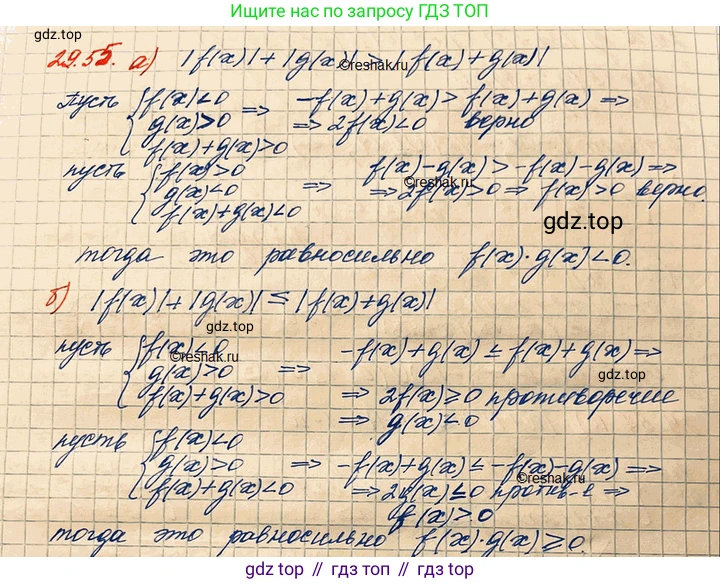 Ищите нас по запросу ГДЗ ТОП
gdz.top
29.55. а) |f(x)| + |g(x)| > |f(x) + g(x)|
©reshak.ru
пусть { f(x) < 0
g(x) > 0
f(x) + g(x) > 0
⇒ -f(x) + g(x) > f(x) + g(x) ⇒
⇒ 2f(x) < 0 верно
пусть { f(x) > 0
g(x) < 0
f(x) + g(x) < 0
⇒ f(x) - g(x) > -f(x) - g(x) ⇒
©reshak.ru
⇒ 2f(x) > 0 ⇒ f(x) > 0 верно.
gdz.top
тогда это равносильно f(x) · g(x) < 0.
б) |f(x)| + |g(x)| ≤ |f(x) + g(x)|
gdz.top
пусть { f(x) < 0
©reshak.ru
g(x) > 0
f(x) + g(x) > 0
⇒ -f(x) + g(x) ≤ f(x) + g(x) ⇒
gdz.top
⇒ 2f(x) ≥ 0 противоречие
⇒ g(x) < 0
пусть { f(x) < 0
g(x) > 0
f(x) + g(x) < 0
⇒ -f(x) + g(x) ≤ -f(x) - g(x) ⇒
©reshak.ru
⇒ 2g(x) ≤ 0 против-е ⇒
f(x) > 0
gdz.top
тогда это равносильно f(x) · g(x) ≥ 0.
gdz.top // гдз.топ // гдз.top